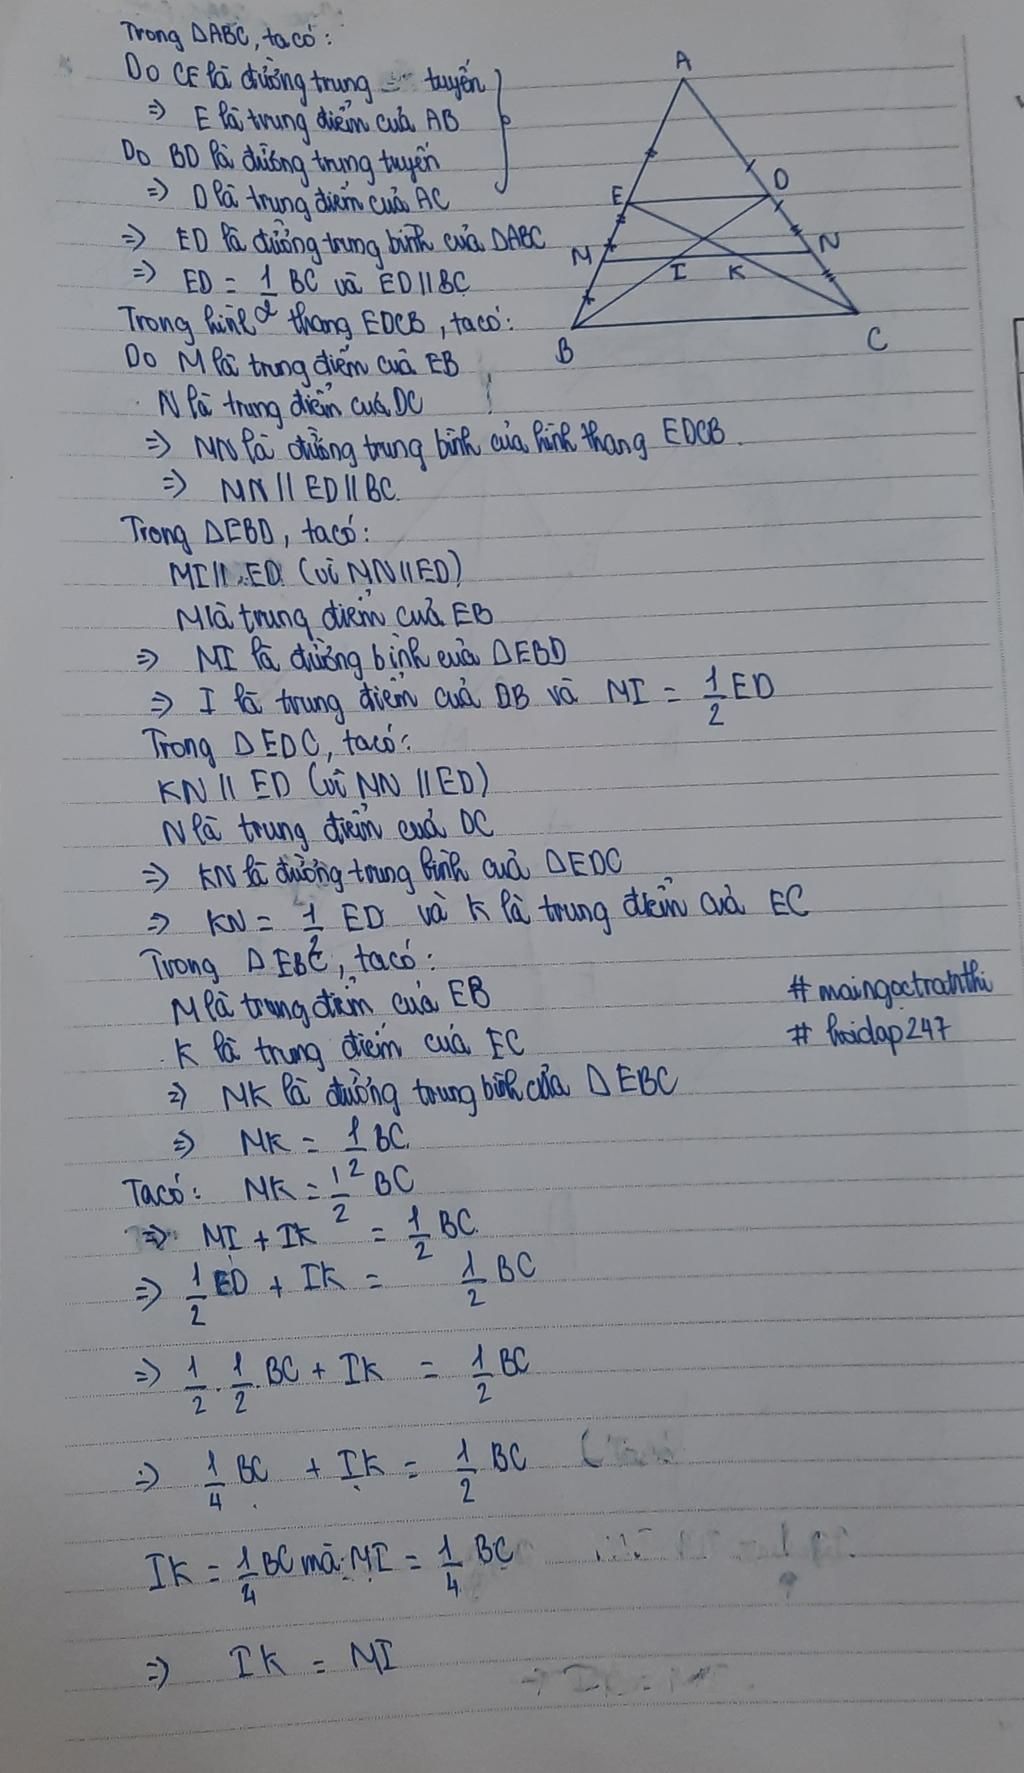 Trong ΔABC, ta có:
Do CE là đường trung tuyến
=> E là trung điểm của AB
Do BD là đường trung tuyến
=> D là trung điểm của AC
=> ED là đường trung bình của ΔABC
=> ED = 1/2 BC và ED // BC
Trong hình thang EDCB, ta có:
Do M là trung điểm của EB
N là trung điểm của DC
=> MN là đường trung bình của hình thang EDCB.
=> MN // ED // BC.
Trong ΔEBD, ta có:
MI // ED (vì MN // ED)
M là trung điểm của EB
=> MI là đường bình của ΔEBD
=> I là trung điểm của DB và MI = 1/2 ED
Trong ΔEDC, ta có:
KN // ED (vì MN // ED)
N là trung điểm của DC
=> KN là đường trung bình của ΔEDC
=> KN = 1/2 ED và K là trung điểm của EC
Trong ΔEBC, ta có:
M là trung điểm của EB
K là trung điểm của EC
=> MK là đường trung bình của ΔEBC
=> MK = 1/2 BC
Ta có: MK = 1/2 BC
=> MI + IK = 1/2 BC
=> 1/2 ED + IK = 1/2 BC
=> 1/2 . 1/2 . BC + IK = 1/2 BC
=> 1/4 BC + IK = 1/2 BC
IK = 1/4 BC mà MI = 1/4 BC
=> IK = MI
A
E
D
M
N
I
K
B
C
# maingoctranthi
# hoidap247